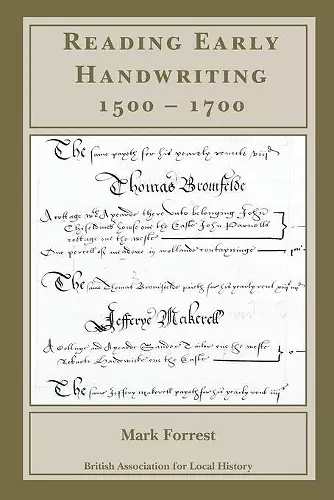 READING EARLY
HANDWRITING
1500 – 1700
The same payeth for his yearely rente viijd
Thomas Bromfelde
A cottage wth A yearde there unto belonging John
house one the Easte John Parnolls
cottage one the weste
One percell of meadowe in
The same Thomas Bromfelde paieth for his yearly rent
Jefferye Makerell
A Cottage and A yearde Sander Tailor one the weste
one the Easte
The same Jeffery makerell payeth for his yearly rent
Mark Forrest
British Association for Local History